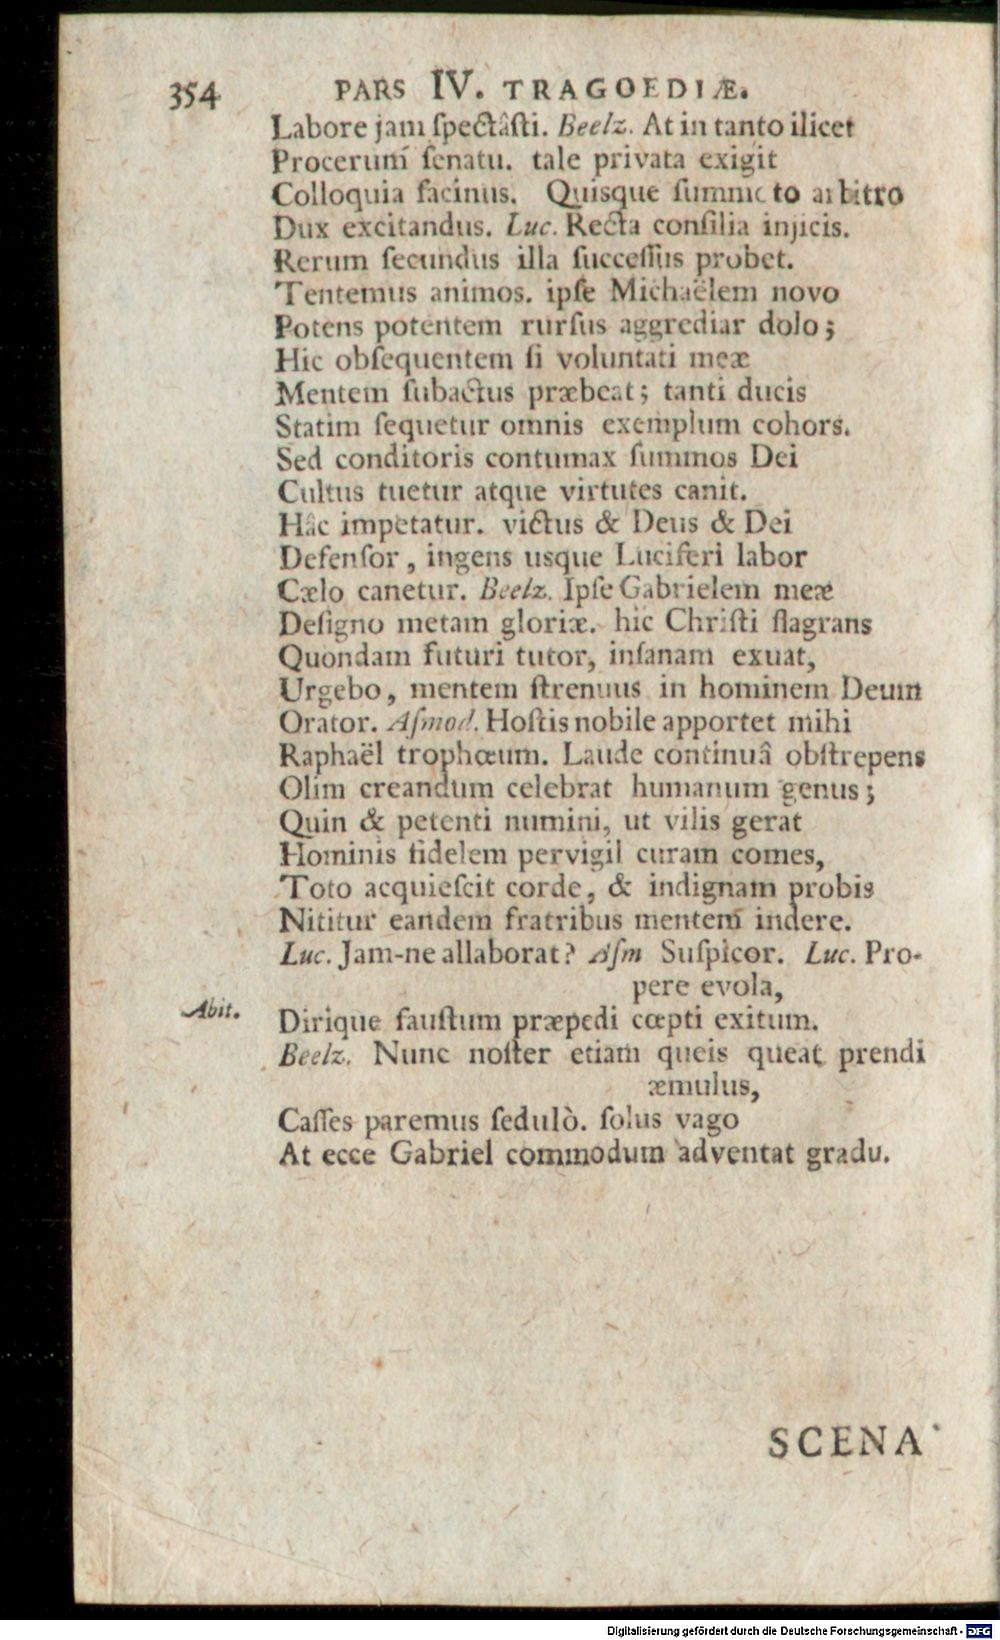 354 PARS IV. TRAGOEDIÆ.
Labore jam ſpectâſti. Beelz. At in tanto ilicet
Procerum ſenatu. tale privata exigit
Colloquia facinus. Quisque ſummo to arbitro
Dux excitandus. Luc. Recta conſilia injicis.
Rerum ſecundus illa ſucceſſus probet.
Tentemus animos. ipſe Michaëlem novo
Potens potentem rurſus aggrediar dolo;
Hic obſequentem ſi voluntati meæ
Mentem ſubactus præbeat; tanti ducis
Statim ſequetur omnis exemplum cohors.
Sed conditoris contumax ſummos Dei
Cultus tuetur atque virtutes canit.
Hâc impetatur. victus & Deus & Dei
Defenſor, ingens usque Luciferi labor
Cælo canetur. Beelz. Ipſe Gabrielem meæ
Deſigno metam gloriæ. hic Chriſti flagrans
Quondam futuri tutor, inſanam exuat,
Urgebo, mentem ſtrenuus in hominem Deum
Orator. Aſmod. Hoſtis nobile apportet mihi
Raphaël trophœum. Laude continuâ obſtrepens
Olim creandum celebrat humanum genus;
Quin & petenti numini, ut vilis gerat
Hominis fidelem pervigil curam comes,
Toto acquieſcit corde, & indignam probis
Nititur eandem fratribus mentem indere.
Luc. Jam-ne allaborat? Aſm Suſpicor. Luc. Pro-
pere evola,
Abit. Dirique fauſtum præpedi cœpti exitum.
Beelz. Nunc noſter etiam queis queat prendi
æmulus,
Caſſes paremus ſedulò. ſolus vago
At ecce Gabriel commodum adventat gradu.
SCENA
Digitalisierung gefördert durch die Deutsche Forschungsgemeinschaft - DFG